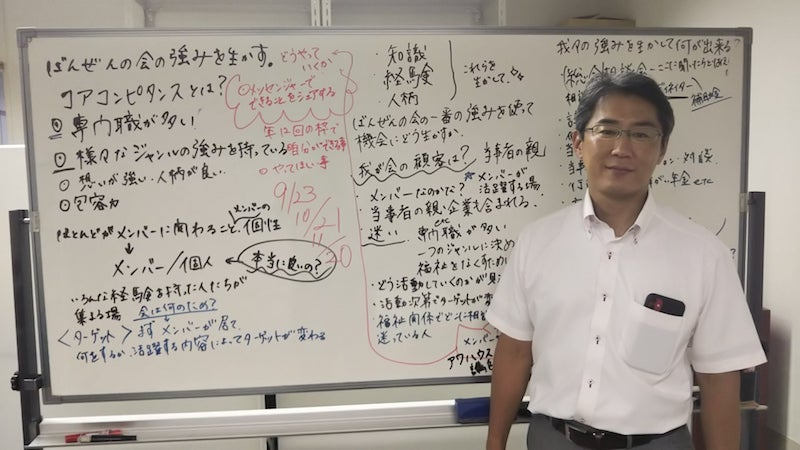 ばんぜんの会の強みを生かす。
どうやって
いくか
コアコンピタンスとは?
◎専門職が多い
◎様々なジャンルの強みを持っている
○想いが強い・人柄が良い
○包容力
○メッセンジャーで
できることをシェアする
年12回の枠で
自分ができる事
○やってほしい事
9/23
10/21
11/20
ほとんどがメンバーに関わること、個性
メンバーの
メンバー/個人
本当に良いの?
いろんな経験を持った人たちが
集まる場
会は何のため?
<ターゲット>まずメンバーが居て、
何をするか、活躍する内容によってターゲットが変わる
・知識
・経験
・人柄
これらを
生かして、
ばんぜんの会の一番の強みを使って
機会にどう生かすか。
我が会の顧客は?
当事者の親
・メンバーなのかな?
メンバーが
活躍する場
・当事者の親・企業も含まれる、etc
迷い
専門職が多い
一つのジャンルに決め
福祉をなくすため
・どう活動していくのかが
・活動次第でターゲットが変
・福祉関係でどこに相
迷っている人
メンバ
アウハウス
我々の強みを生かして何が出来る?
補助金
対談
年金 etc